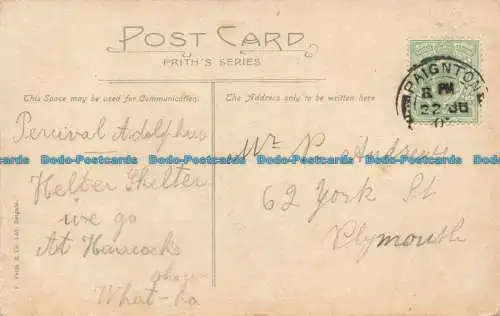 POST CARD
FRITH'S SERIES
This Space may be used for Communication.
The Address only to be written here
PAIGNTON
8 PM
22
Percival Adolphus
Helter Skelter
we go
At Hancocks
show
What-ho
Mr P Andrews
62 York St
Plymouth
F. Frith & Co. Ltd. Reigate.
Bodo-Postcards Bodo-Postcards Bodo-Postcards Bodo-Postcards Bodo-Postcards